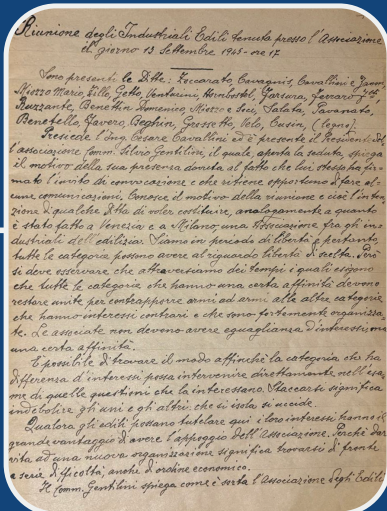 Riunione degli Industriali Edili tenuta presso l'Associazione
il giorno 13 Settembre 1945 - ore 17
Sono presenti le Ditte: Zoccarato, Cavagnis, Cavallini e
Miozzo Mario, Zillo, Getto, Venturini Hornbostel, Garsura, Ferraro
Buzzante, Benettin Domenico, Miozzo e Soci, Salata, Pavanato,
Benetello, Favero, Beghin, Grossetto, Velo, Eusin, (legno).
Presiede l'Ing. Cesare Cavallini ed è presente il Presidente del
l'associazione Comm. Silvio Gentilini, il quale, aperta la seduta, spiega
il motivo della sua presenza dovuta al fatto che lui stesso ha fir-
mato l'invito di convocazione e che ritiene opportuno di fare al-
cune comunicazioni. Conosce il motivo della riunione e cioè l'inten-
zione di qualche Ditta di voler costituire, analogamente a quanto
è stato fatto a Venezia e a Milano, una Associazione fra gli in-
dustriali dell'edilizia. Siamo in periodo di libertà e pertanto
tutte le categorie possono avere al riguardo libertà di scelta. Però
si deve osservare che attraversiamo dei tempi i quali esigono
che tutte le categorie che hanno una certa affinità devono
restare unite per contrapporre armi ad armi alle altre categorie
che hanno interessi contrari e che sono fortemente organizza
te. Le associate non devono avere eguaglianza d'interessi, ma
una certa affinità.
È possibile di trovare il modo affinchè la categoria che ha
differenza d'interessi possa intervenire direttamente nell'esa-
me di quelle questioni che la interessano. Staccarsi significa
indebolire gli uni e gli altri: chi si isola si uccide.
Qualora gli edili possano tutelare qui i loro interessi hanno il
grande vantaggio di avere l'appoggio dell'Associazione. Perchè dar
vita ad una nuova organizzazione significa trovarsi di fronte
a serie difficoltà, anche di ordine economico.
Il Comm. Gentilini spiega come è sorta l'Associazione degli Edili